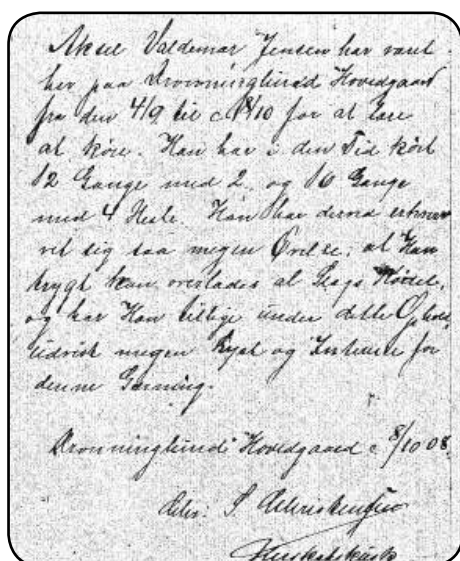 Aksel Valdemar Jensen har været
her paa Dronninglund Hovedgaard
fra den 4/9 til c 8/10 for at lære
at køre. Han har i den Tid kørt
12 Gange med 2 og 16 Gange
med 4 Heste. Han har derved erhver-
vet sig saa megen Øvelse; at Han
trygt kan overlades al Slags Kørsel,
og har Han tillige under dette Ophold
udvist megen Lyst og Interesse for
denne Gerning.
Dronninglund Hovedgaard c 8/10 08.